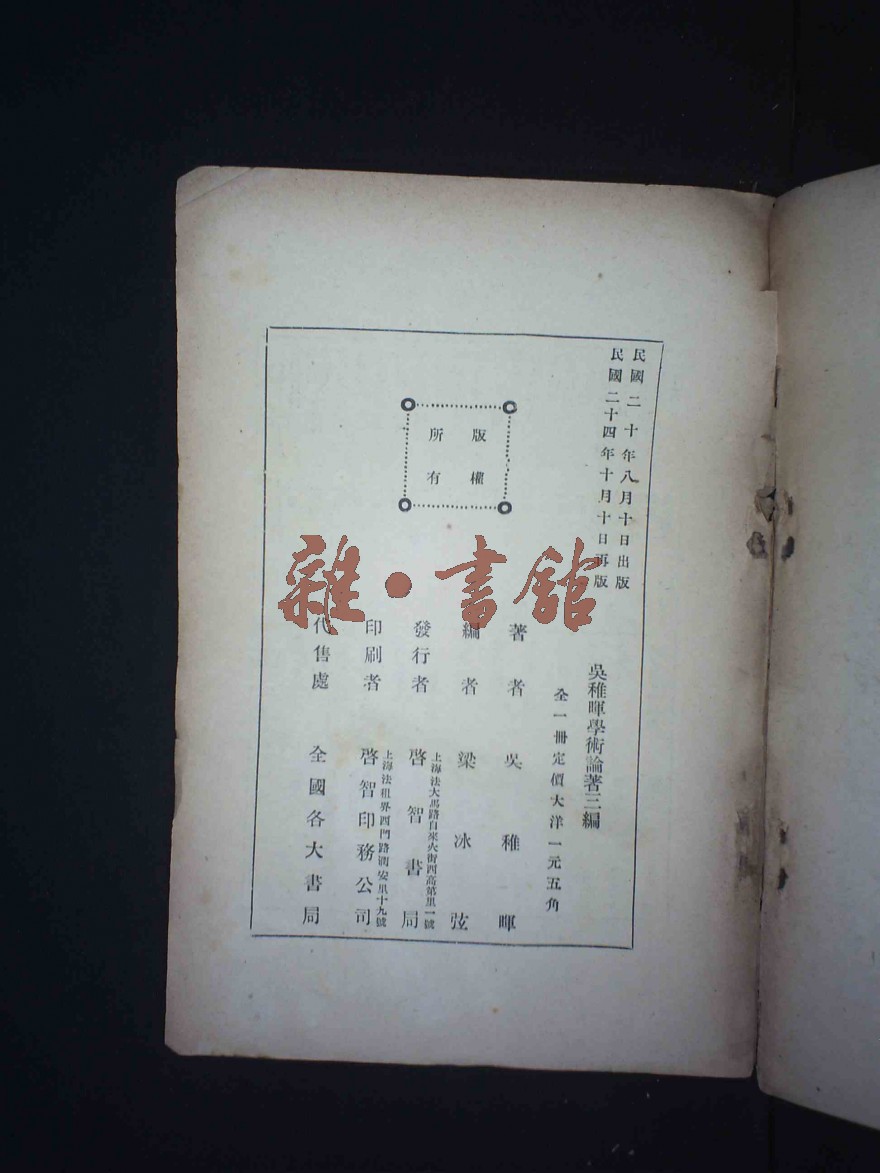 民國二十年八月十日出版
民國二十四年十月十日再版
吳稚暉學術論著三編
全一冊定價大洋一元五角
著者 吳稚暉
編者 梁冰弦
上海法大馬路自來火街西高第里一號
發行者 啓智書局
上海法租界西門路潤安里十九號
印刷者 啓智印務公司
代售處 全國各大書局
版權
所有
雜·書館